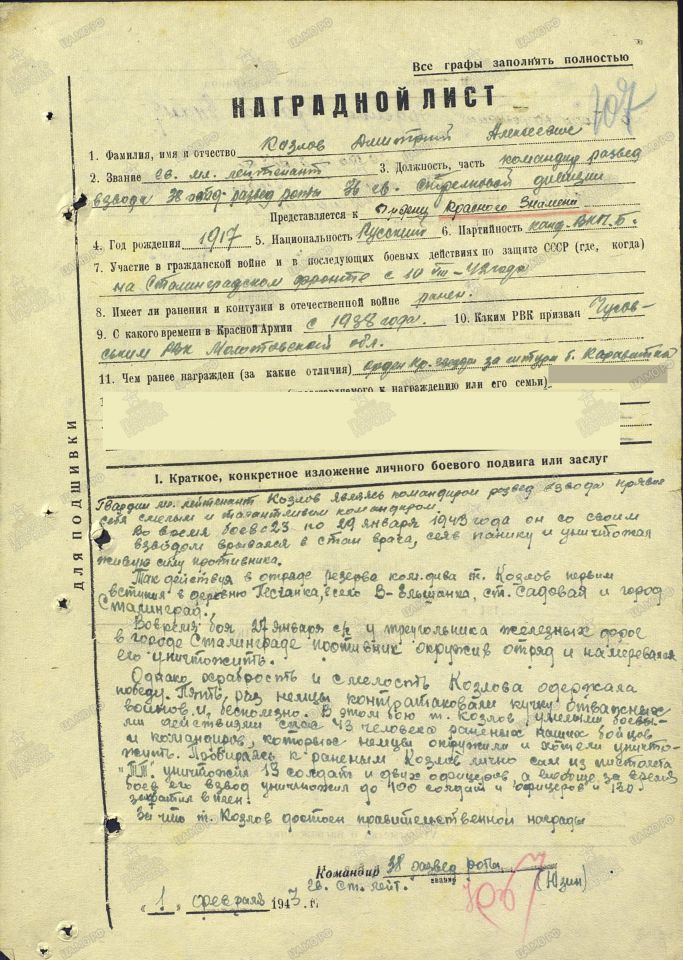 Все графы заполнять полностью
НАГРАДНОЙ ЛИСТ
107
1. Фамилия, имя и отчество Козлов Дмитрий Алексеевич
2. Звание гв. мл. лейтенант 3. Должность, часть командир развед
взвода 38 развед роты 36 гв. стрелковой дивизии
Представляется к Ордену Красного Знамени
4. Год рождения 1917 5. Национальность Русский 6. Партийность канд. ВКП.Б.
7. Участие в гражданской войне и в последующих боевых действиях по защите СССР (где, когда)
на Сталинградском фронте с 10 VIII-42 года
8. Имеет ли ранения и контузии в отечественной войне ранен.
9. С какого времени в Красной Армии с 1938 года. 10. Каким РВК призван Чусов-
ским РВК Молотовской обл.
11. Чем ранее награжден (за какие отличия) орден Кр. звезды за штурм б. Караватка
к награждению или его семьи)
I. Краткое, конкретное изложение личного боевого подвига или заслуг
Гвардии мл. лейтенант Козлов являясь командиром развед взвода проявил
себя смелым и талантливым командиром.
Во время боев с 23 по 29 января 1943 года он со своим
взводом врывался в стан врага, сеяв панику и уничтожая
живую силу противника.
Так действуя в отряде резерва ком. дива т. Козлов первым
вступил в деревню Песчанка, село В-Ельшанка, ст. Садовая и город
Сталинград.
Вовремя боя 27 января с/г у треугольника железных дорог
в городе Сталинграде противник окружив отряд и намеревался
его уничтожить.
Однако храбрость и смелость Козлова одержала
победу. Пять раз немцы контратаковали кучку отважных
воинов, и, бесполезно. В этом бою т. Козлов умелыми боевы-
ми действиями спас 43 человека раненых наших бойцов
и командиров, которых немцы окружили и хотели уничто-
жить. Пробираясь к раненым Козлов лично сам из пистолета
"ТТ" уничтожил 13 солдат и двух офицеров, а вообще за время
боев его взвод уничтожил до 400 солдат и офицеров и 130
захватил в плен.
За что т. Козлов достоен правительственной награды
Командир 38 развед роты
гв. ст. лейт. звание (Юзин)
„1" февраля 1943 г.
1067
ДЛЯ ПОДШИВКИ
ЦАМО РФ